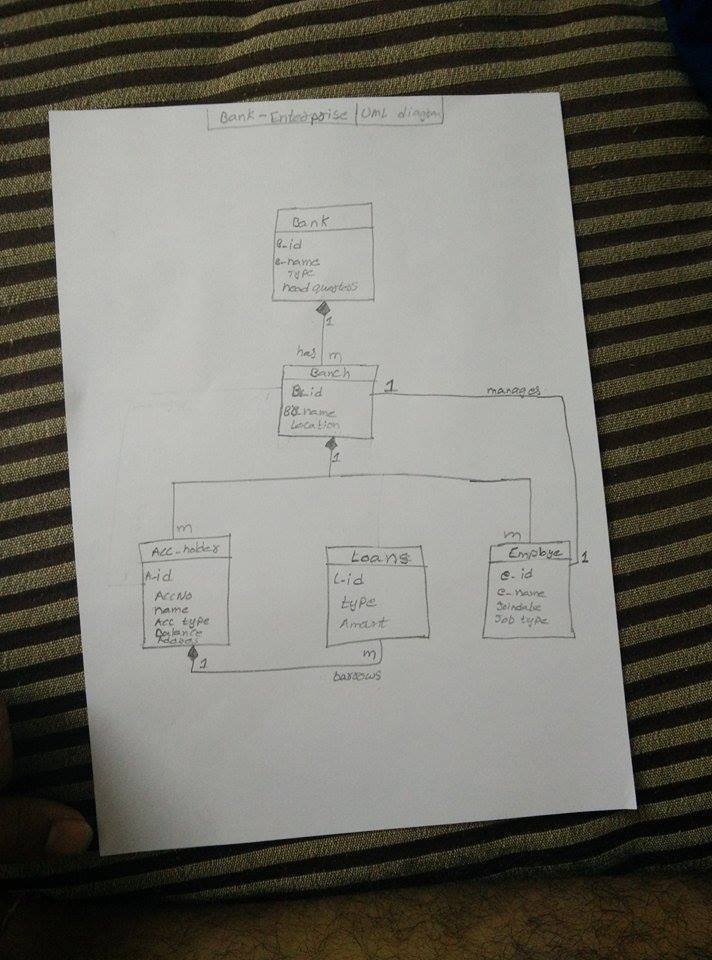 Bank-Enterprise | UML diagram
Bank
B_id
B_name
Type
head quarters
1
has m
Banch
1
manages
Br_id
BR_name
Location
1
m
m
Acc_holder
A_id
AccNo
name
Acc type
Balance
Loans
L_id
type
Amount
Employe
1
e_id
e_name
Joindate
Job type
1
m
barrows